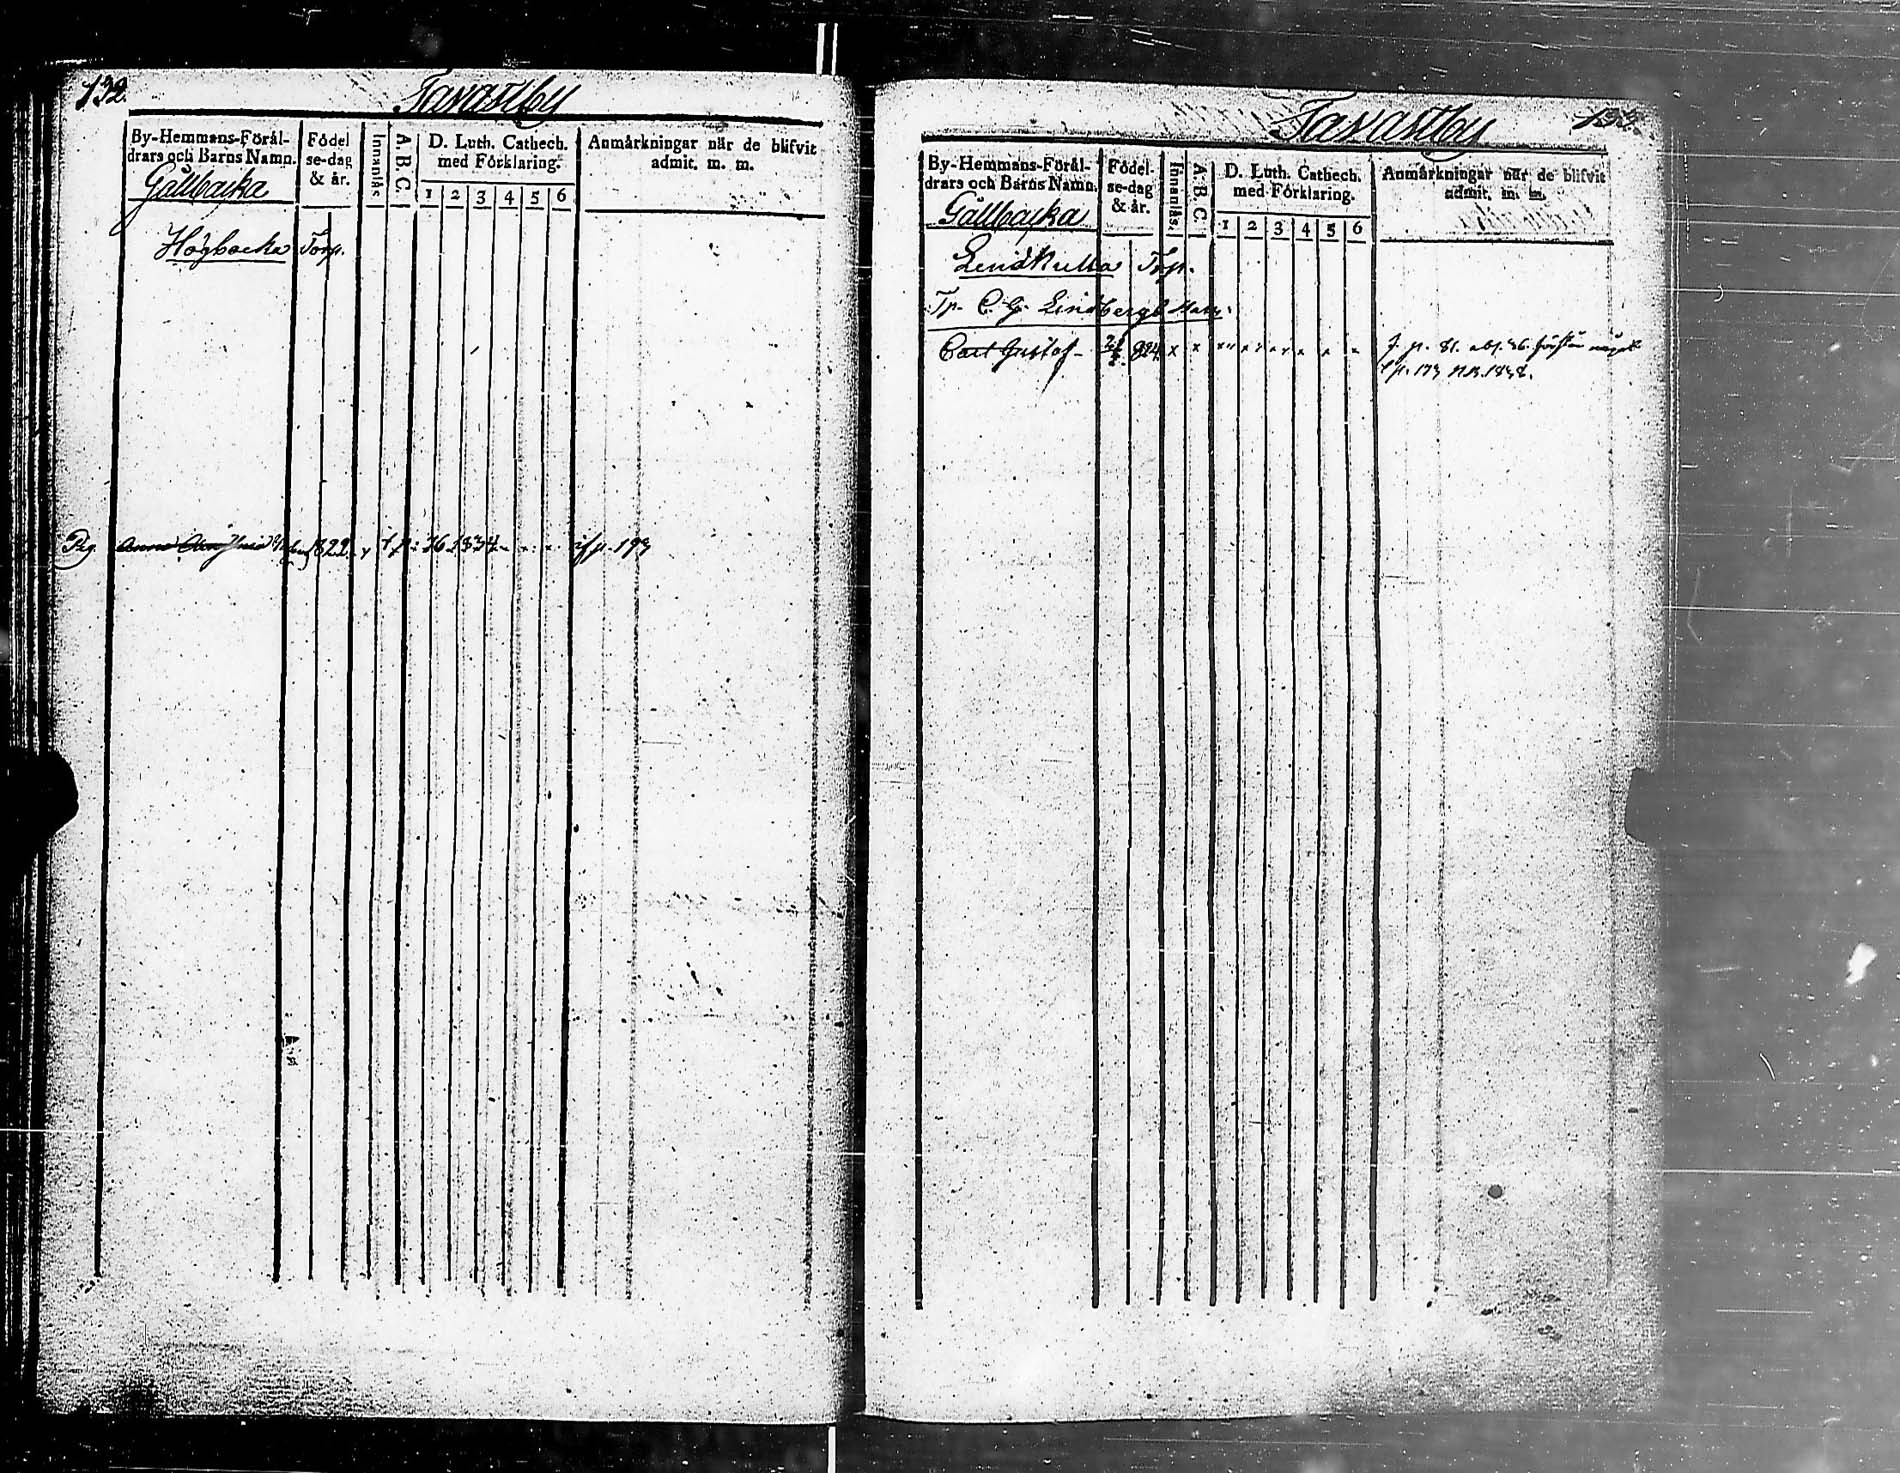 132.
Tavastby
By-Hemmans-Föräl-
drars och Barns Namn.
Födel
se-dag
& år.
Innanläs.
A. B. C.
D. Luth. Cathech.
med Förklaring.
1 2 3 4 5 6
Anmärkningar när de blifvit
admit. m. m.
Gällbacka
Högbacka Torp.
Pig. Anna 1822 1834 p. 193
Tavastby
133.
By-Hemmans-Föräl-
drars och Barns Namn.
Födel-
se-dag
& år.
Innanläs.
A. B. C.
D. Luth. Cathech.
med Förklaring.
1 2 3 4 5 6
Anmärkningar när de blifvit
admit. m. m.
Gällbacka
Lindkulla Torp.
Tp. C. G. Lindbergs Barn.
Carl Gustaf 824 x x p. 81.
p. 173 1838.